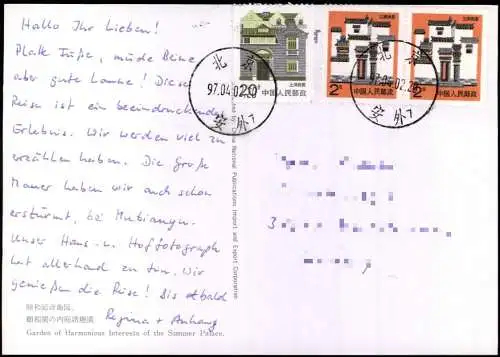 Hallo Ihr Lieben!
Platte Füße, müde Beine
aber gute Laune! Diese
Reise ist ein beeindruckendes
Erlebnis. Wir werden viel zu
erzählen haben. Die Große
Mauer haben wir auch schon
erstürmt, bei Mutianyu.
Unser Haus- u. Hoffotograph
hat allerhand zu tun. Wir
genießen die Reise! Bis bald
Regina + Anhang
頤和園諧趣園
Garden of Harmonious Interests of the Summer Palace.
China National Publications Import and Export Corporation
20分
上海民居
中国人民邮政
2分
上海民居
中国人民邮政
2分
上海民居
中国人民邮政
北京
97.04.02.20
安外7
北京
97.04.02.20
安外7
3